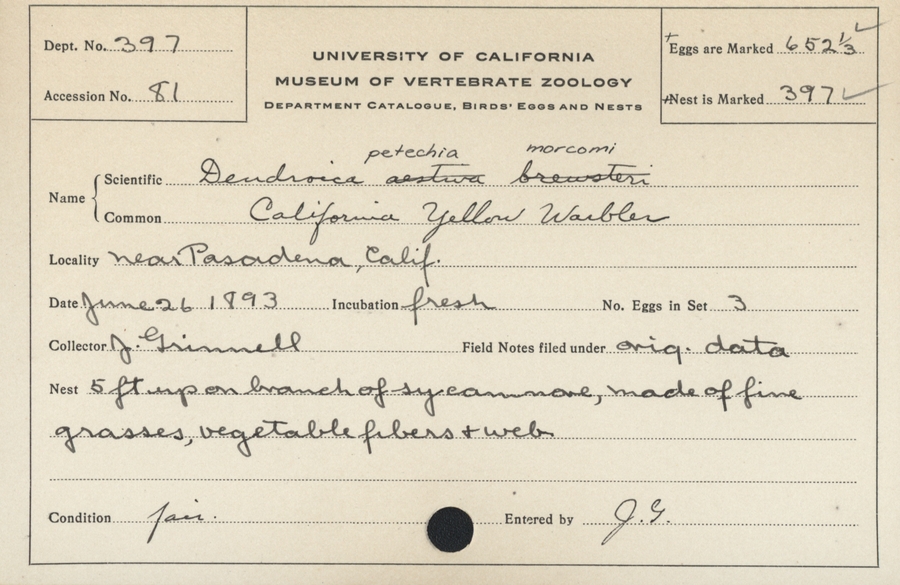 Dept. No. 397
UNIVERSITY OF CALIFORNIA
MUSEUM OF VERTEBRATE ZOOLOGY
DEPARTMENT CATALOGUE, BIRDS' EGGS AND NESTS
Accession No. 81
+Eggs are Marked 652 1/3 ✓
+Nest is Marked 397 ✓
petechia morcomi
Name { Scientific Dendroica aestiva brewsteri
Common California Yellow Warbler
Locality near Pasadena, Calif.
Date June 26 1893 Incubation fresh No. Eggs in Set 3
Collector J. Grinnell Field Notes filed under orig. data
Nest 5 ft up on branch of sycamore, made of fine
grasses, vegetable fibers + web
Condition fair. Entered by J.G.